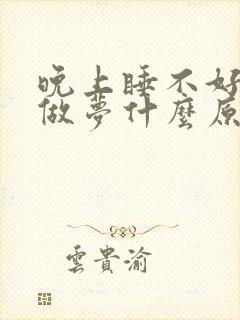 晚上睡不好
做夢什麼原
雲貴渝